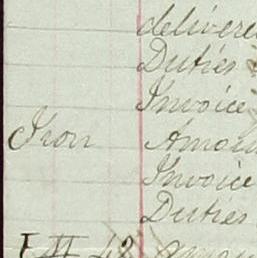 delivere
Duties
Invoice
Iron Amou
Invoice
Duties